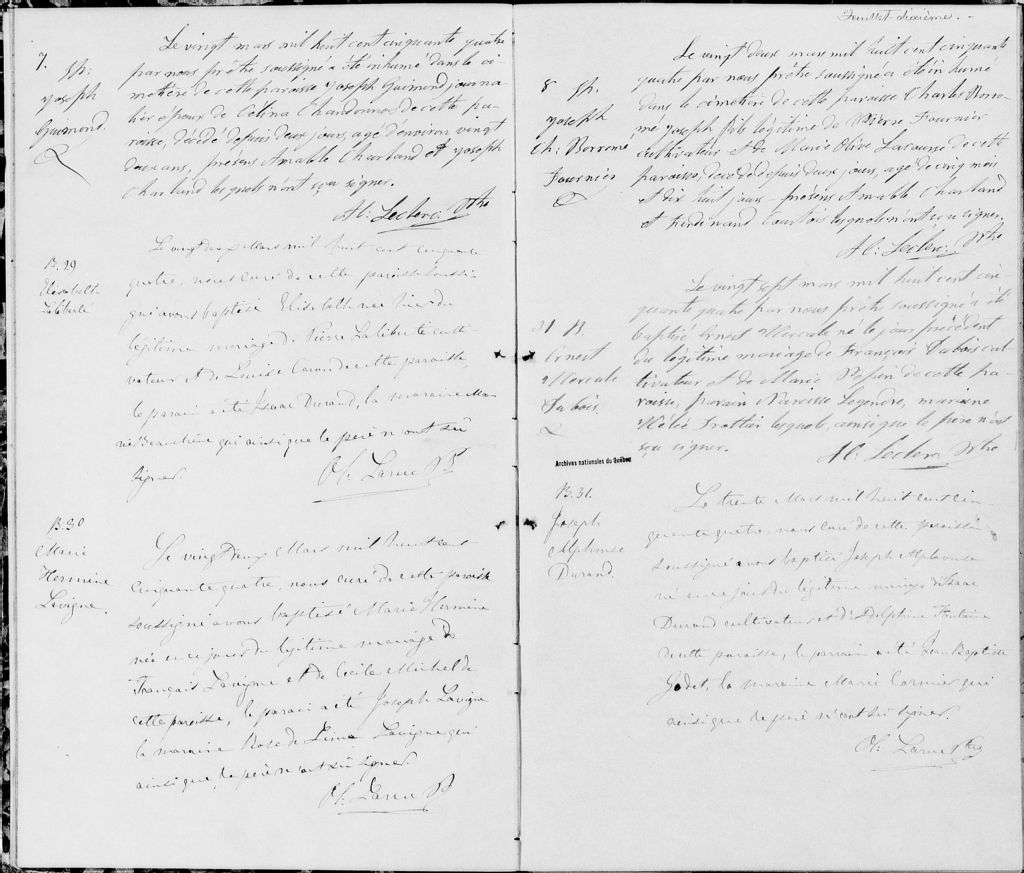 7. Sp:
Joseph
Guimond.
Le vingt mars mil huit cent cinquante quatre
par nous prêtre soussigné a été inhumé dans le ci-
metière de cette paroisse Joseph Guimond journa-
lier époux de Célina Chandonnet de cette pa-
roisse, décédé depuis deux jours, agé d'environ vingt
deux ans, présens Amable Charland et Joseph
Charland lesquels n'ont sçu signer.
Al: Leclerc Ptre
B. 29
Elisabeth
Laliberté
Le vingt deux Mars mil huit cent cinquante
quatre, nous curé de cette paroisse soussi-
gné avons baptisé Elisabeth née hier du
légitime mariage de Pierre Laliberté culti-
vateur et de Louise Caron de cette paroisse,
le parain a été Isaac Durand, la maraine Ma-
rie Beauchêne qui ainsi que le père n'ont su
signer.
Ol. Larue Pt
B. 30
Marie
Hermine
Lavigne.
Le vingt deux Mars mil huit cent
cinquante quatre, nous curé de cette paroisse
soussigné avons baptisé Marie Hermine
née en ce jour du légitime mariage de
François Lavigne et de Cécile Michel de
cette paroisse, le parain a été Joseph Lavigne
la maraine Rose de Lima Lavigne qui
ainsi que le père n'ont su signer.
Ol. Larue Pt
Feuillet dixième.
8 Sp.
Joseph
Ch: Borromé
Fournier
Le vingt deux mars mil huit cent cinquante
quatre par nous prêtre soussigné a été inhumé
dans le cimetière de cette paroisse Charles Borro-
mé Joseph fils légitime de Pierre Fournier
cultivateur et de Marie Olive Lacourse de cette
paroisse, décédé depuis deux jours, agé de cinq mois
et dix huit jours - présens Amable Charland
et Ferdinand Courtois lesquels n'ont sçu signer.
Al: Leclerc Ptre
31 B.
Ernest
Mercule
Dubois.
Le vingt sept mars mil huit cent cin-
quante quatre par nous prêtre soussigné a été
baptisé Ernest Mercule né le jour précédent
du légitime mariage de François Dubois cul-
tivateur et de Marie de cette pa-
roisse, parain Narcisse Legendre, maraine
Trottier lesquels, ainsi que le père n'ont
sçu signer.
Al: Leclerc Ptre
Archives nationales du Québec
B. 31.
Joseph
Alphonse
Durand.
Le trente Mars mil huit cent cin-
quante quatre, nous curé de cette paroisse
soussigné avons baptisé Joseph Alphonse
né en ce jour du légitime mariage d'Isaac
Durand cultivateur et d'Adelphine Fontaine
de cette paroisse, le parrain a été Jean Baptiste
Godet, la maraine Marie Cormier qui
ainsi que le père n'ont su signer.
Ol. Larue Ptre